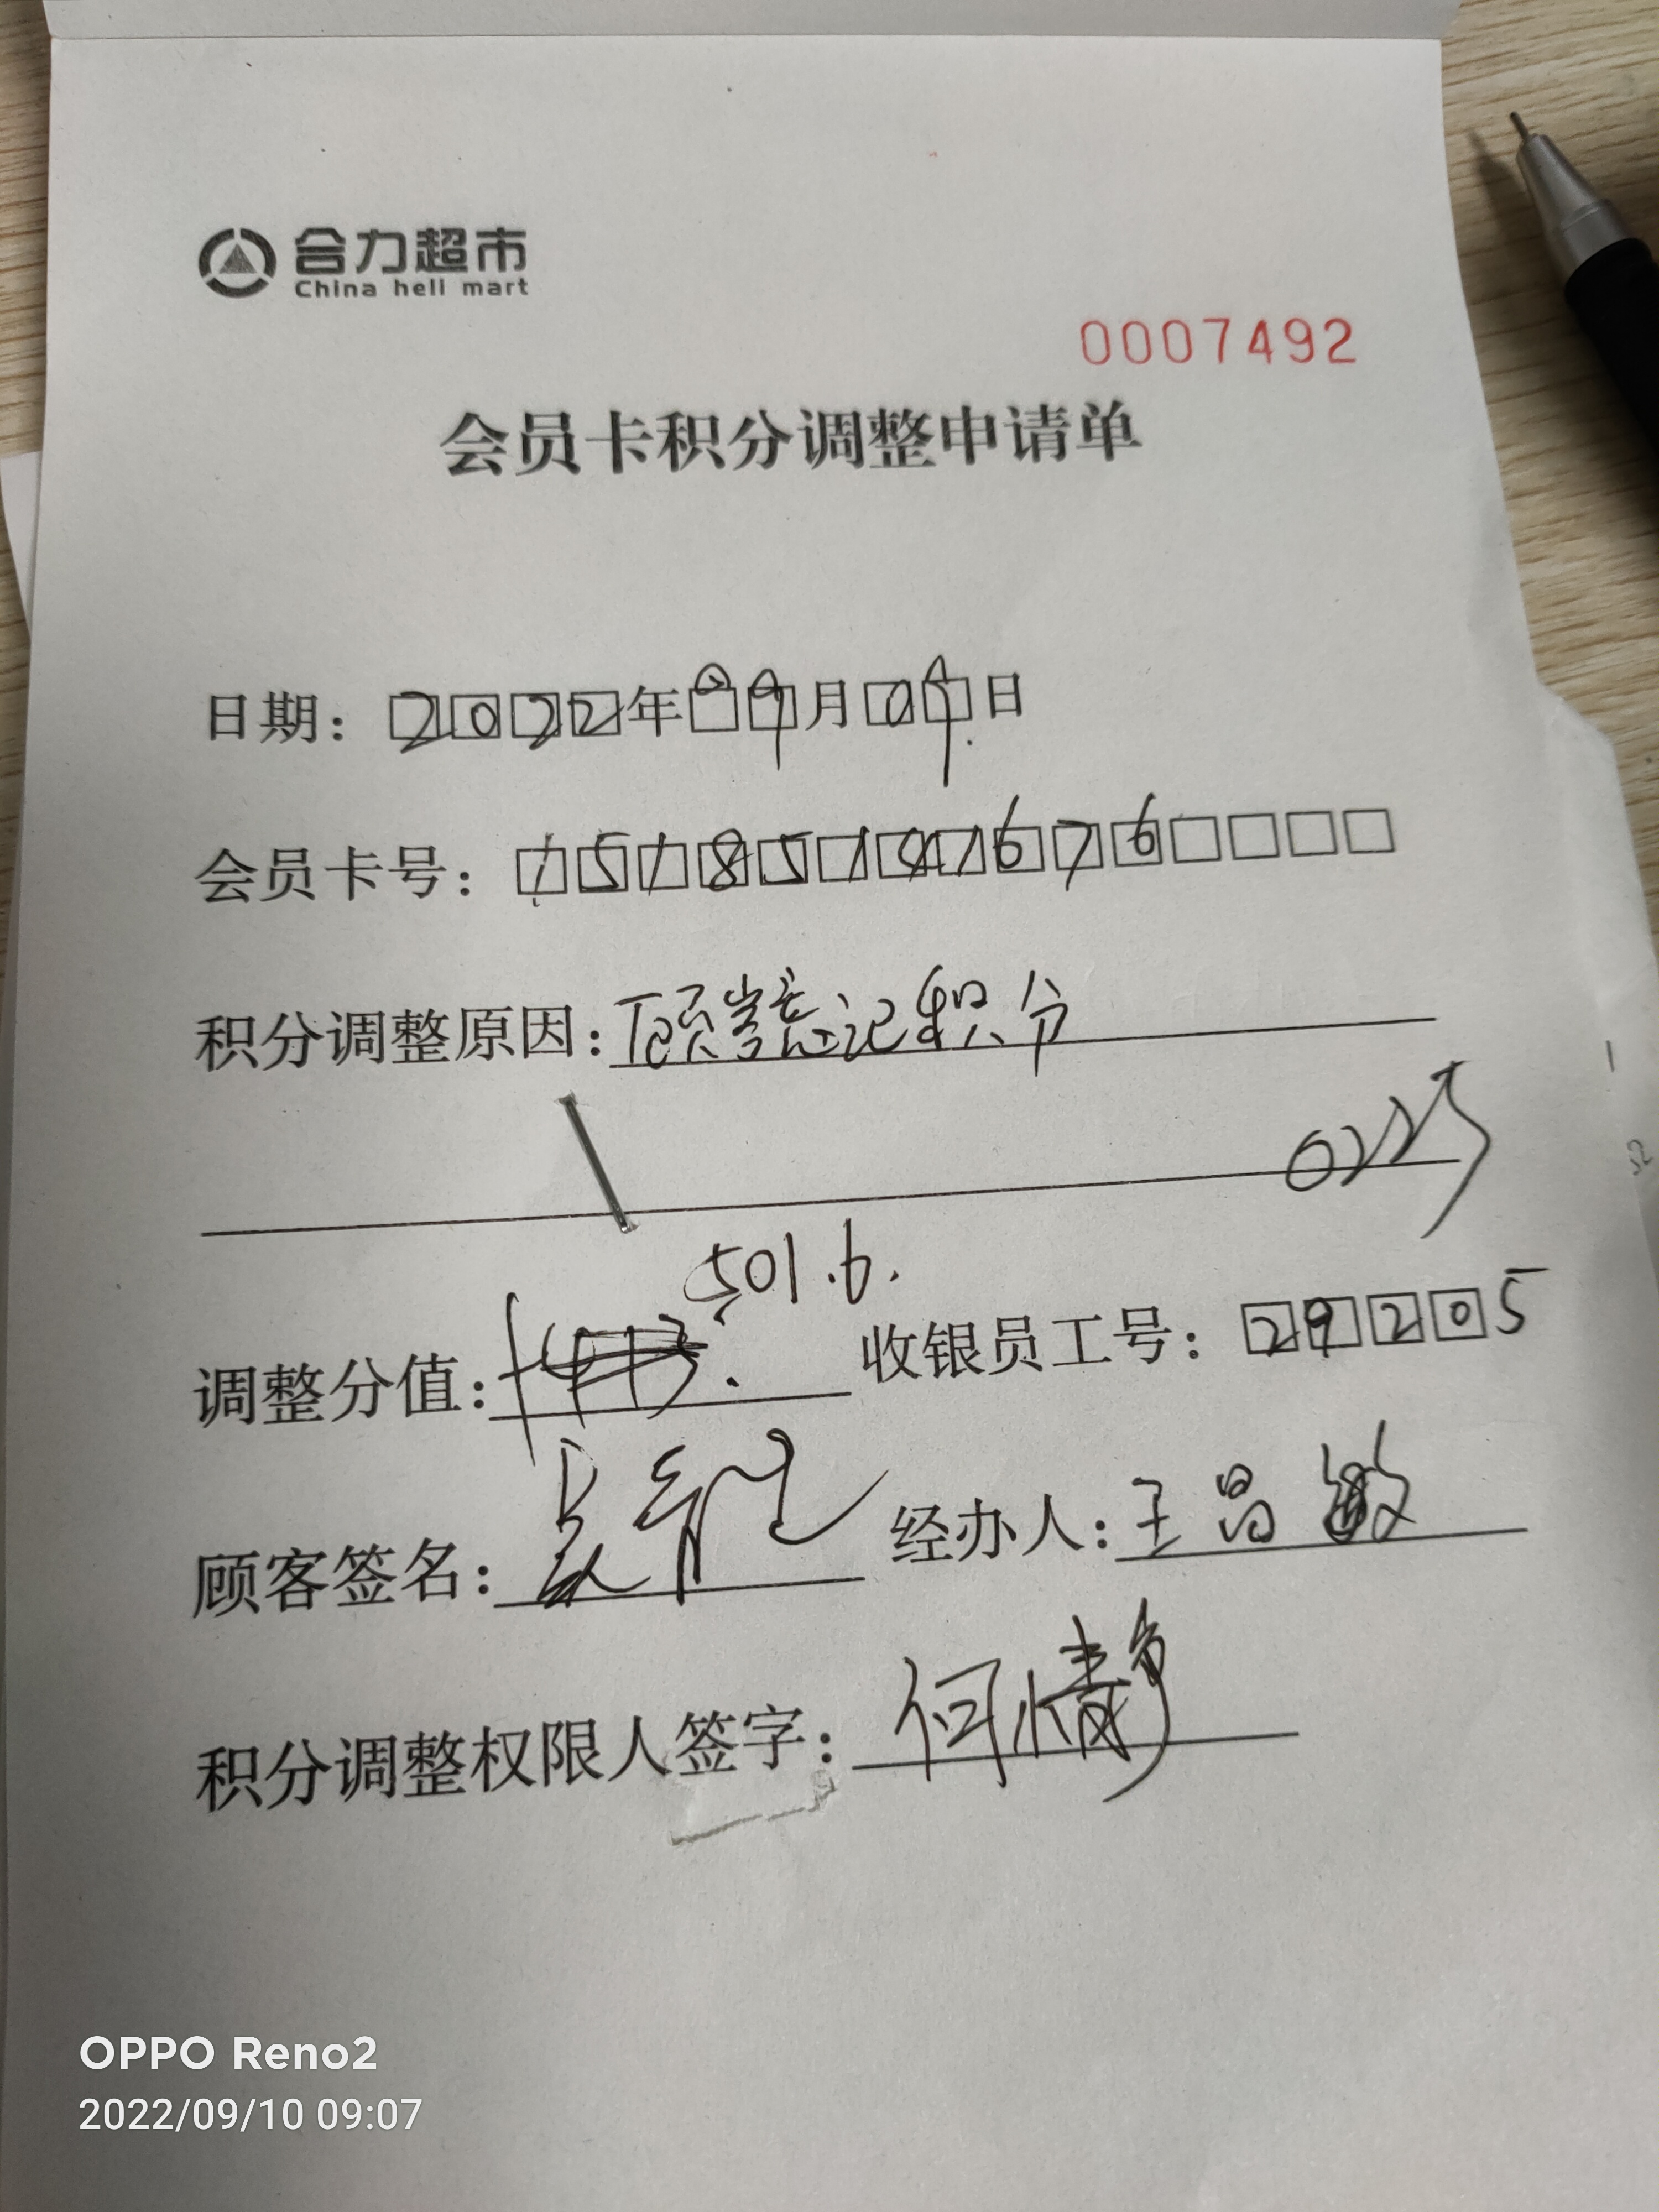 合力超市
China heli mart
0007492
会员卡积分调整申请单
日期：2022年09月09日
会员卡号：15185141676
积分调整原因：顾客忘记积分
0225
501.6.
调整分值： 收银员工号：29205
顾客签名： 经办人：王昌敏
积分调整权限人签字：何情静
OPPO Reno2
2022/09/10 09:07